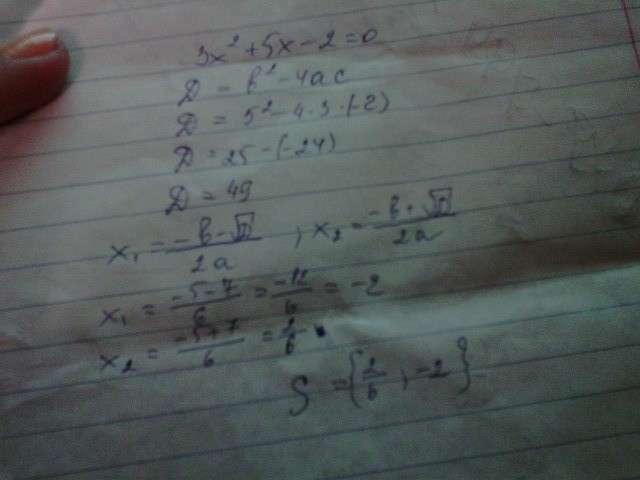 3x² + 5x - 2 = 0
D = b² - 4ac
D = 5² - 4 · 3 · (-2)
D = 25 - (-24)
D = 49
x₁ = (-b - √D)/2a ; x₂ = (-b + √D)/2a
x₁ = (-5-7)/6 = -12/6 = -2
x₂ = (-5+7)/6 = 2/6
S = {2/6, -2}